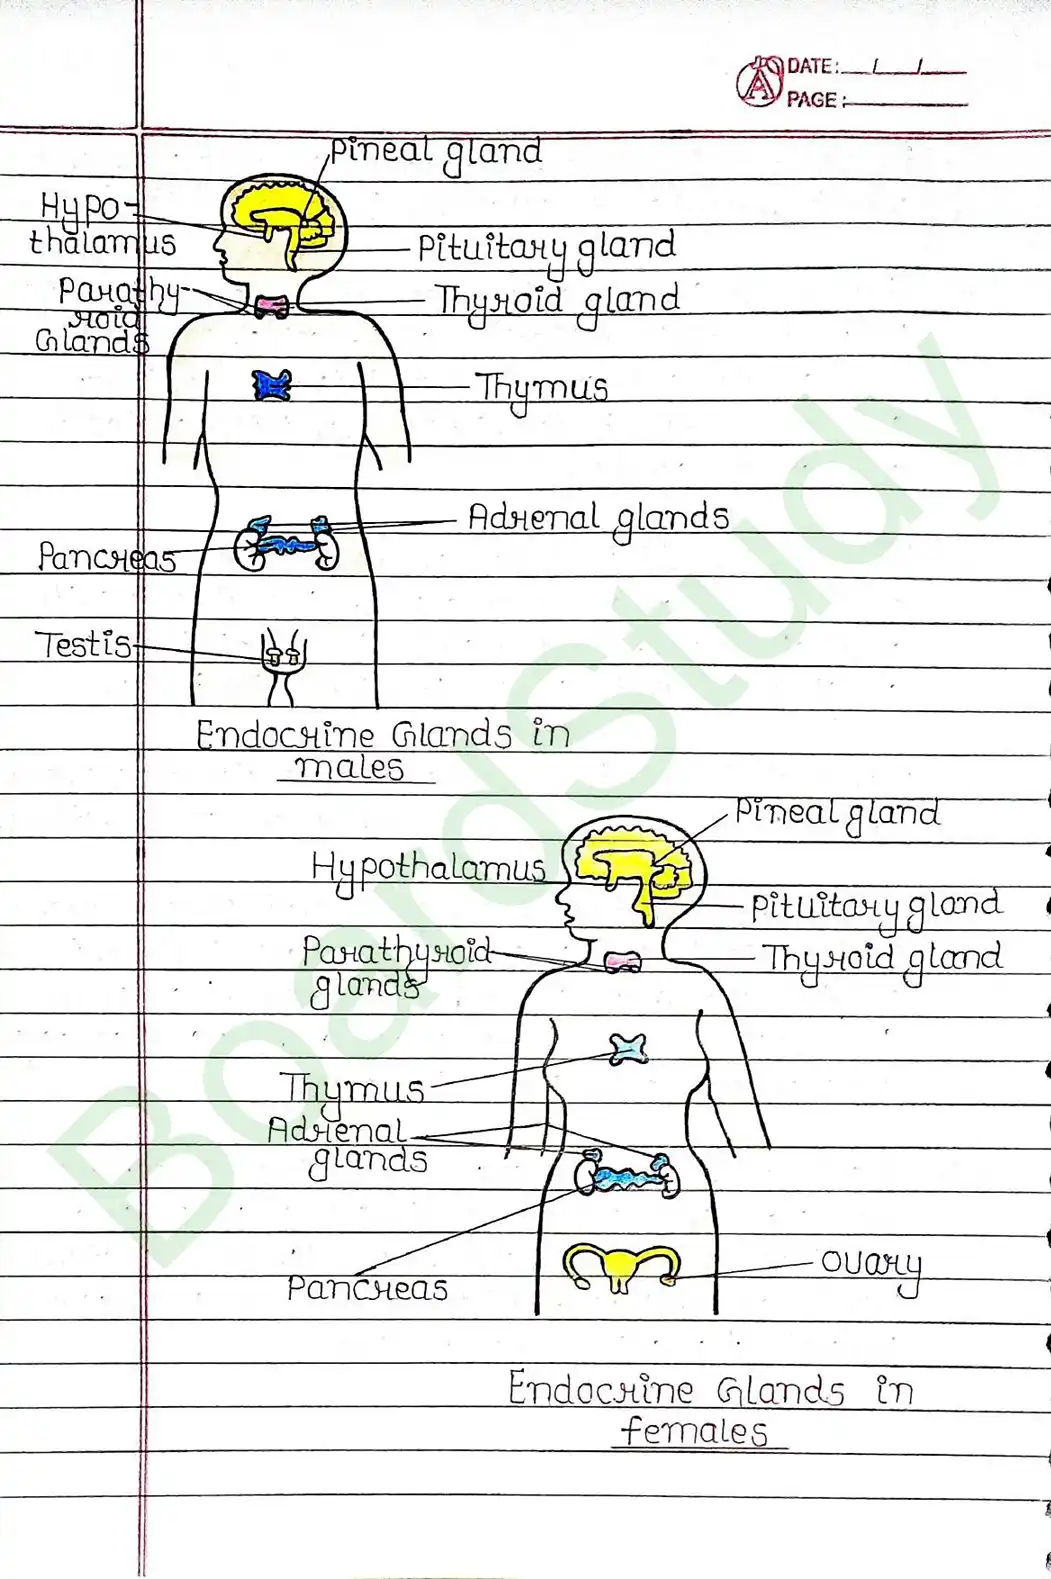 DATE: / /
PAGE:
Pineal gland
Hypo-
thalamus
Pituitary gland
Parathy-
roid
Glands
Thyroid gland
Thymus
Adrenal glands
Pancreas
Testis
Endocrine Glands in
males
Pineal gland
Hypothalamus
Pituitary gland
Parathyroid
glands
Thyroid gland
Thymus
Adrenal
glands
Pancreas
Ovary
Endocrine Glands in
females
BoardStudy